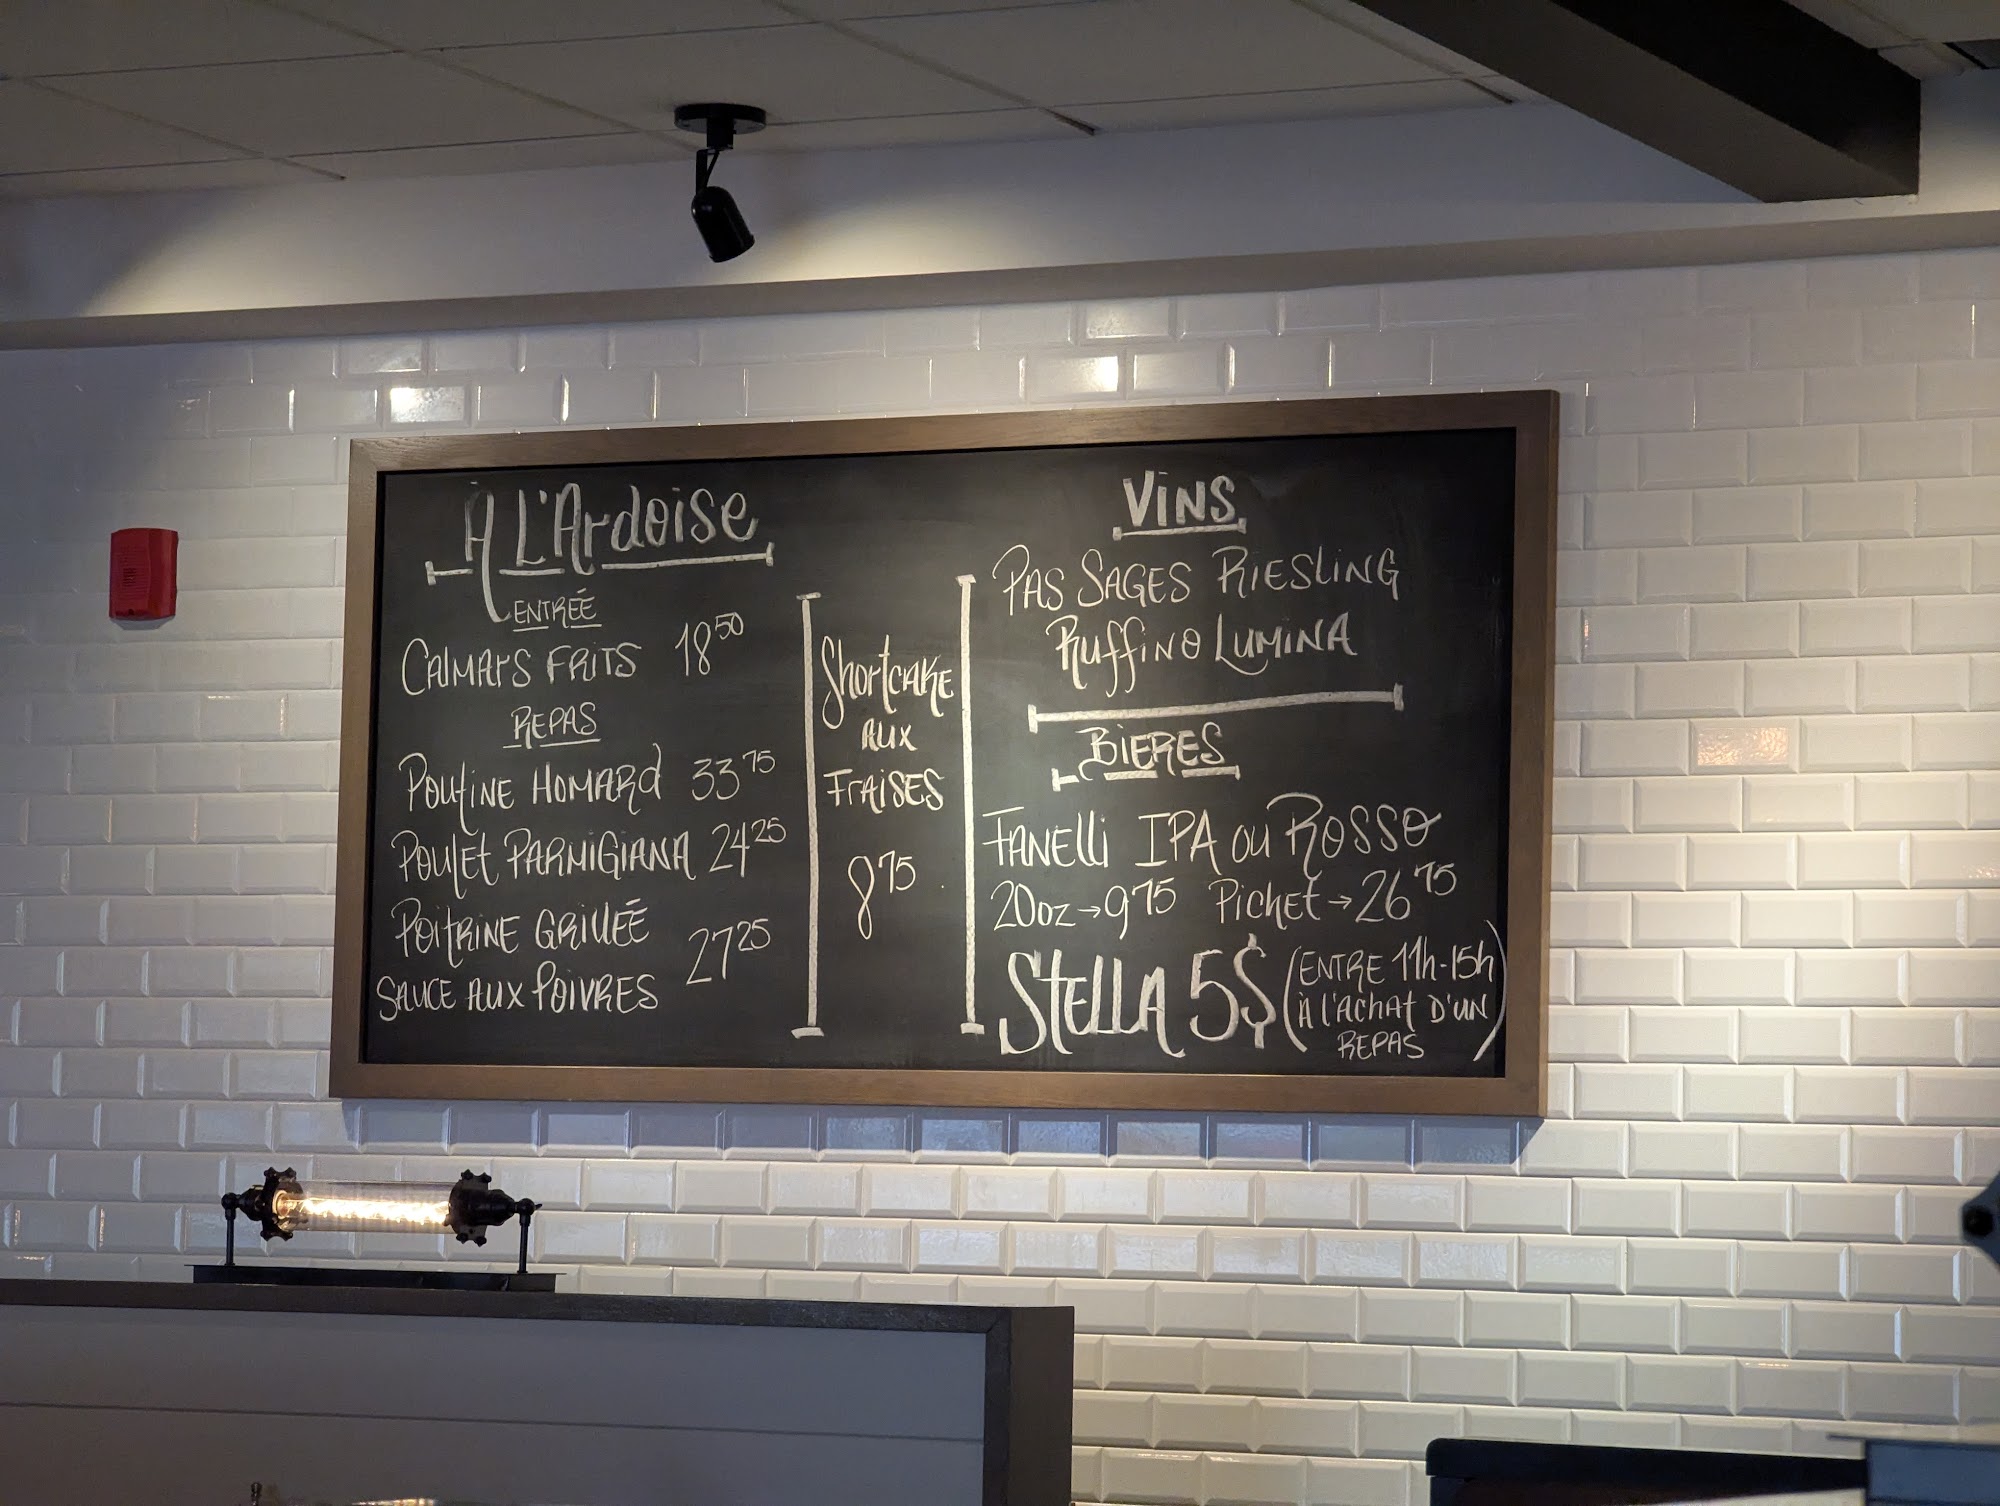 À L'Ardoise
ENTRÉE
CALMARS FRITS 18 50
REPAS
POUTINE HOMARD 33 75
POULET PARMIGIANA 24 25
POITRINE GRILLÉE
SAUCE AUX POIVRES 27 25
Shortcake
AUX
FRAISES
8 75
VINS
PAS SAGES RIESLING
Ruffino LUMINA
BIERES
FANELLI IPA OU ROSSO
20oz→9 75 Pichet→26 75
STELLA 5$ (ENTRE 11h-15h
À L'ACHAT D'UN
REPAS)